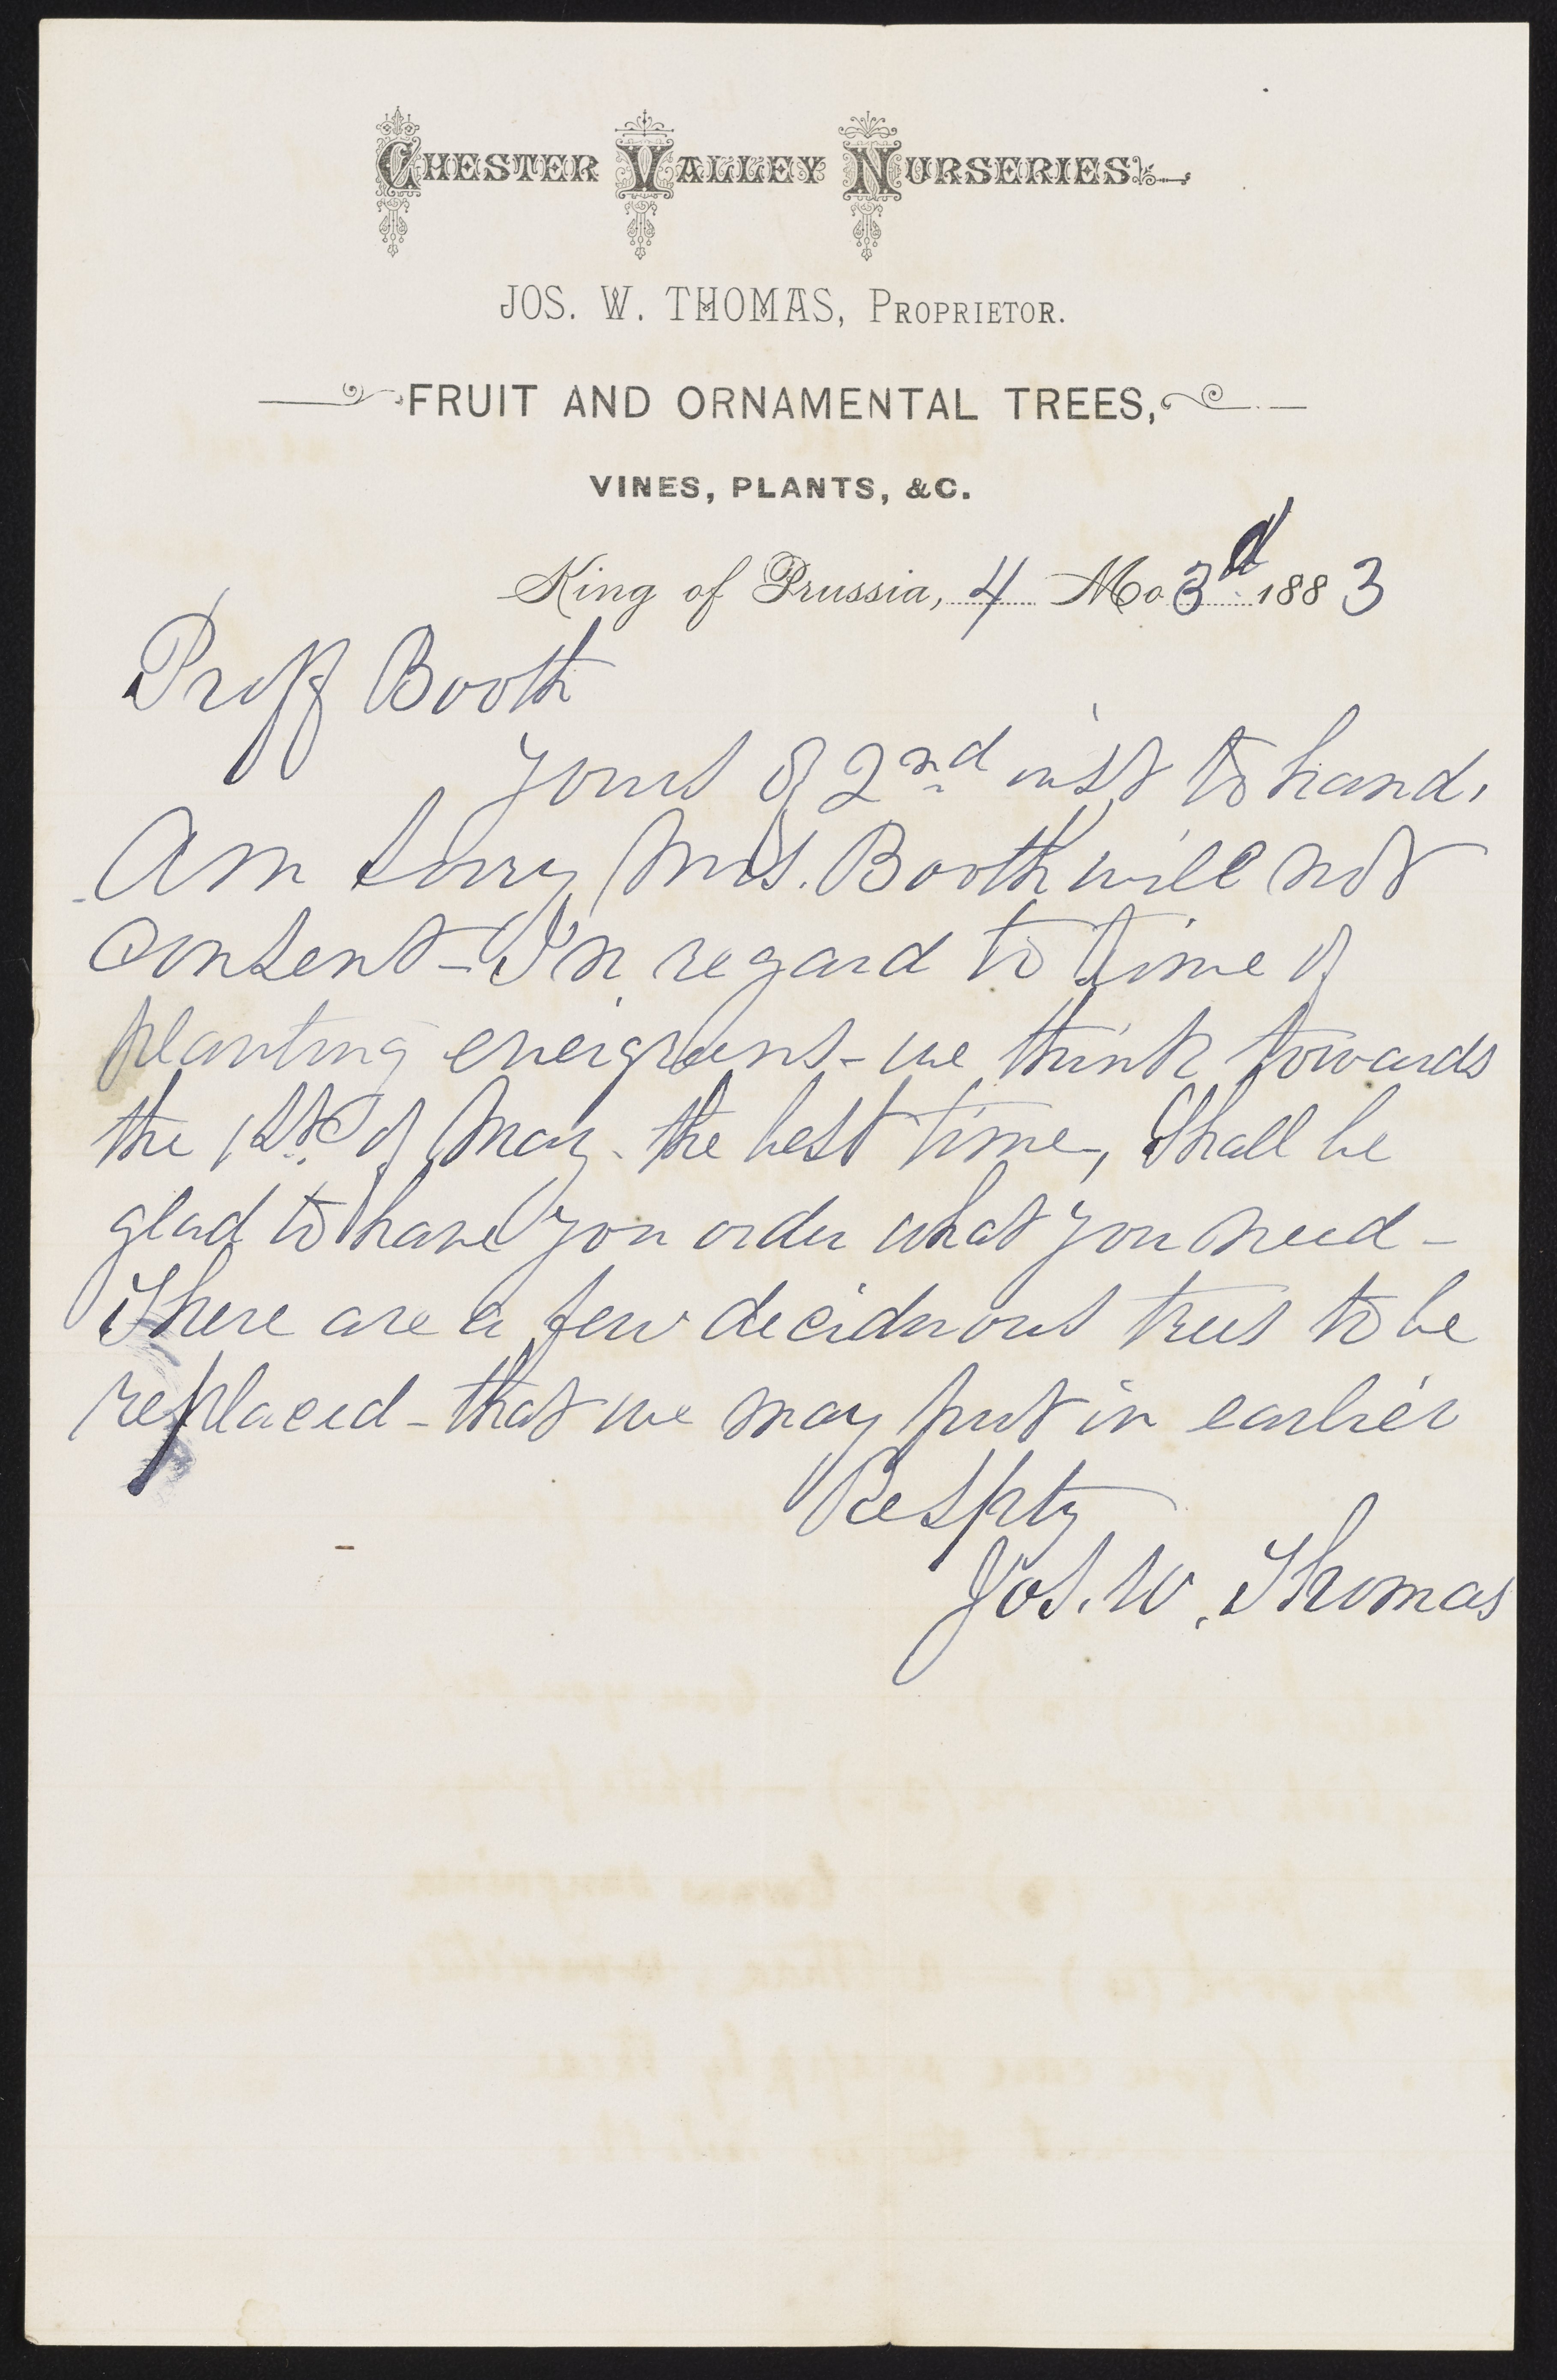 CHESTER VALLEY NURSERIES.
JOS. W. THOMAS, PROPRIETOR.
FRUIT AND ORNAMENTAL TREES,
VINES, PLANTS, &C.
King of Prussia, 4 Mo 3d 1883
Proff Booth
Yours of 2nd inst to hand,
Am sorry Mrs. Booth will not
consent - In regard to time of
planting evergreens - we think towards
the 1st of May - the best time, Shall be
glad to have you order what you need -
There are a few deciduous trees to be
replaced - that we may put in earlier
Respty
Jos. W. Thomas